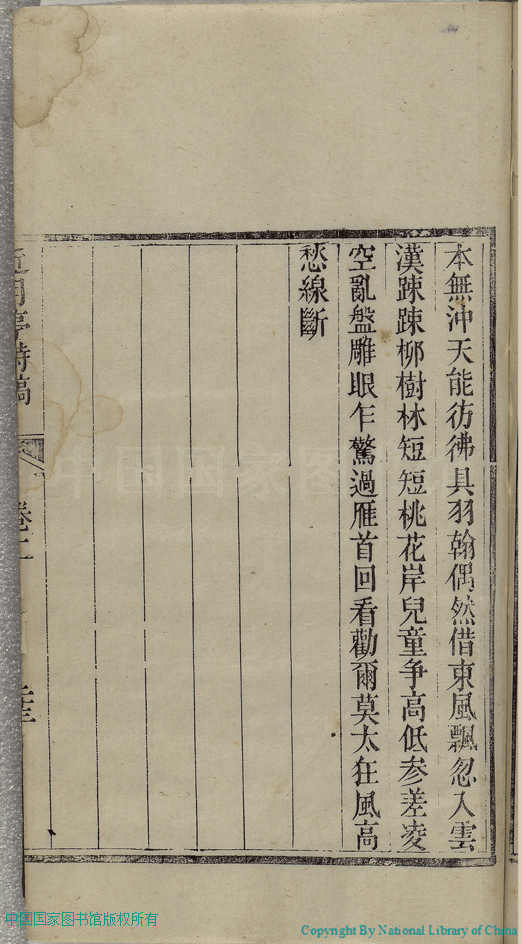 本無沖天能彷彿具羽翰偶然借東風飄忽入雲
漢踈踈桞樹林短短桃花岸兒童争高低参差凌
空亂盤雕眼乍驚過雁首回看勸爾莫太狂風高
愁線斷
月亭詩稿
卷二
中国国家图
中国国家图书馆版权所有
Copyright By National Library of China